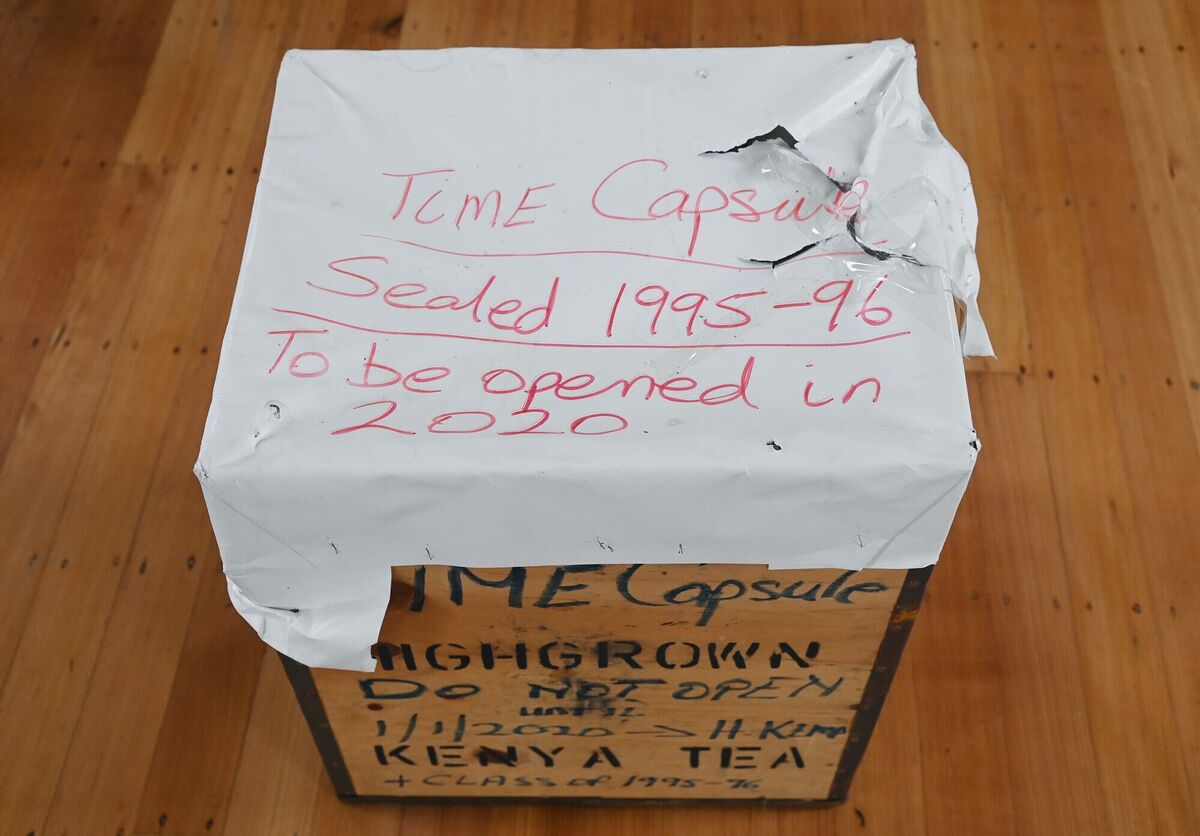 TIME Capsule
Sealed 1995-96
To be opened in
2020.
TIME Capsule
HIGHGROWN
DO NOT OPEN
UNTIL
1/1/2020 → H. Kemp
KENYA TEA
+ CLASS OF 1995-96